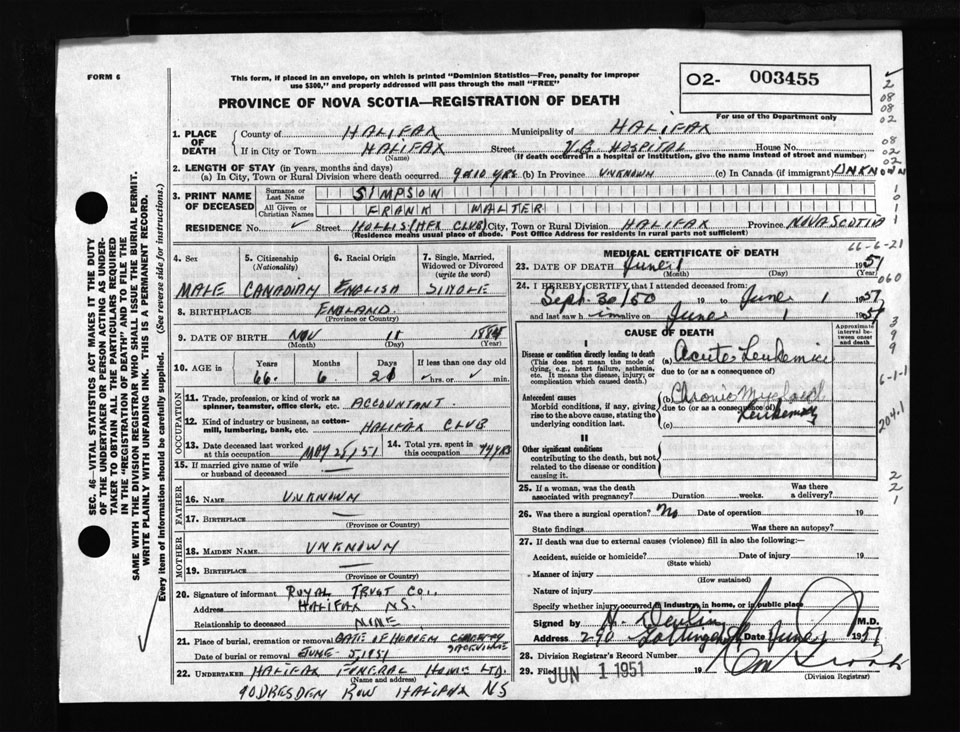 FORM 6
This form, if placed in an envelope, on which is printed "Dominion Statistics—Free, penalty for improper
use $300," and properly addressed will pass through the mail "FREE"
02- 003455
For use of the Department only
PROVINCE OF NOVA SCOTIA—REGISTRATION OF DEATH
1. PLACE OF DEATH
County of HALIFAX Municipality of HALIFAX
If in City or Town HALIFAX Street V.G. HOSPITAL House No.
(Name) (If death occurred in a hospital or institution, give the name instead of street and number)
2. LENGTH OF STAY (in years, months and days)
(a) In City, Town or Rural Division where death occurred 9 or 10 yrs (b) In Province UNKNOWN (c) In Canada (if immigrant) UNKNOWN
3. PRINT NAME OF DECEASED
Surname or Last Name SIMPSON
All Given or Christian Names FRANK WALTER
RESIDENCE No. Street HOLLIS (HFX CLUB) City, Town or Rural Division HALIFAX Province NOVA SCOTIA
(Residence means usual place of abode. Post Office Address for residents in rural parts not sufficient)
4. Sex
MALE
5. Citizenship (Nationality)
CANADIAN
6. Racial Origin
ENGLISH
7. Single, Married, Widowed or Divorced (write the word)
SINGLE
8. BIRTHPLACE ENGLAND
(Province or Country)
9. DATE OF BIRTH NOV 1884
(Month) (Day) (Year)
10. AGE in
Years Months Days If less than one day old
66 6 hrs. or min.
OCCUPATION
11. Trade, profession, or kind of work as spinner, teamster, office clerk, etc. ACCOUNTANT
12. Kind of industry or business, as cotton-mill, lumbering, bank, etc. HALIFAX CLUB
13. Date deceased last worked at this occupation MAY 1951
14. Total yrs. spent in this occupation YRS
15. If married give name of wife or husband of deceased —
FATHER
16. NAME UNKNOWN
17. BIRTHPLACE —
(Province or Country)
MOTHER
18. MAIDEN NAME UNKNOWN
19. BIRTHPLACE —
(Province or Country)
20. Signature of informant ROYAL TRUST CO.,
Address HALIFAX NS.
Relationship to deceased NINE
21. Place of burial, cremation or removal GATE OF HEAVEN CEMETERY SACKVILLE
Date of burial or removal JUNE 5, 1951
22. UNDERTAKER HALIFAX FUNERAL HOME LTD.
(Name and address)
90 DRESDEN ROW HALIFAX NS
MEDICAL CERTIFICATE OF DEATH
23. DATE OF DEATH June 1 1951
(Month) (Day) (Year)
24. I HEREBY CERTIFY that I attended deceased from:
Sept. 30/50 19 to June 1 1951
and last saw h im alive on June 1 1951
CAUSE OF DEATH
Approximate interval between onset and death
I
Disease or condition directly leading to death
(This does not mean the mode of dying, e.g., heart failure, asthenia, etc. It means the disease, injury, or complication which caused death.)
(a) Acute Leukemia
due to (or as a consequence of)
Antecedent causes
Morbid conditions, if any, giving rise to the above cause, stating the underlying condition last.
(b) Chronic Myeloid
due to (or as a consequence of) Leukemia
(c)
II
Other significant conditions
contributing to the death, but not related to the disease or condition causing it.
25. If a woman, was the death associated with pregnancy? Duration weeks. Was there a delivery?
26. Was there a surgical operation? No Date of operation 19
State findings Was there an autopsy?
27. If death was due to external causes (violence) fill in also the following:—
Accident, suicide or homicide? Date of injury 19
(State which)
Manner of injury
(How sustained)
Nature of injury
Specify whether injury occurred in industry, in home, or in public place
Signed by M.D.
Address 290 Date June 1 1951
28. Division Registrar's Record Number
29. Filed JUN 1 1951 19
(Division Registrar)
SEC. 46—VITAL STATISTICS ACT MAKES IT THE DUTY
OF THE UNDERTAKER OR PERSON ACTING AS UNDER-
TAKER TO OBTAIN ALL THE PARTICULARS REQUIRED
IN THE "REGISTRATION OF DEATH" AND TO FILE THE
SAME WITH THE DIVISION REGISTRAR WHO SHALL ISSUE THE BURIAL PERMIT.
WRITE PLAINLY WITH UNFADING INK. THIS IS A PERMANENT RECORD.
Every item of information should be carefully supplied. (See reverse side for instructions.)
2
08
08
02
08
02
02
1
0
1
1
66-6-21
060
3
9
9
6-1-1
204.1
2
2
1